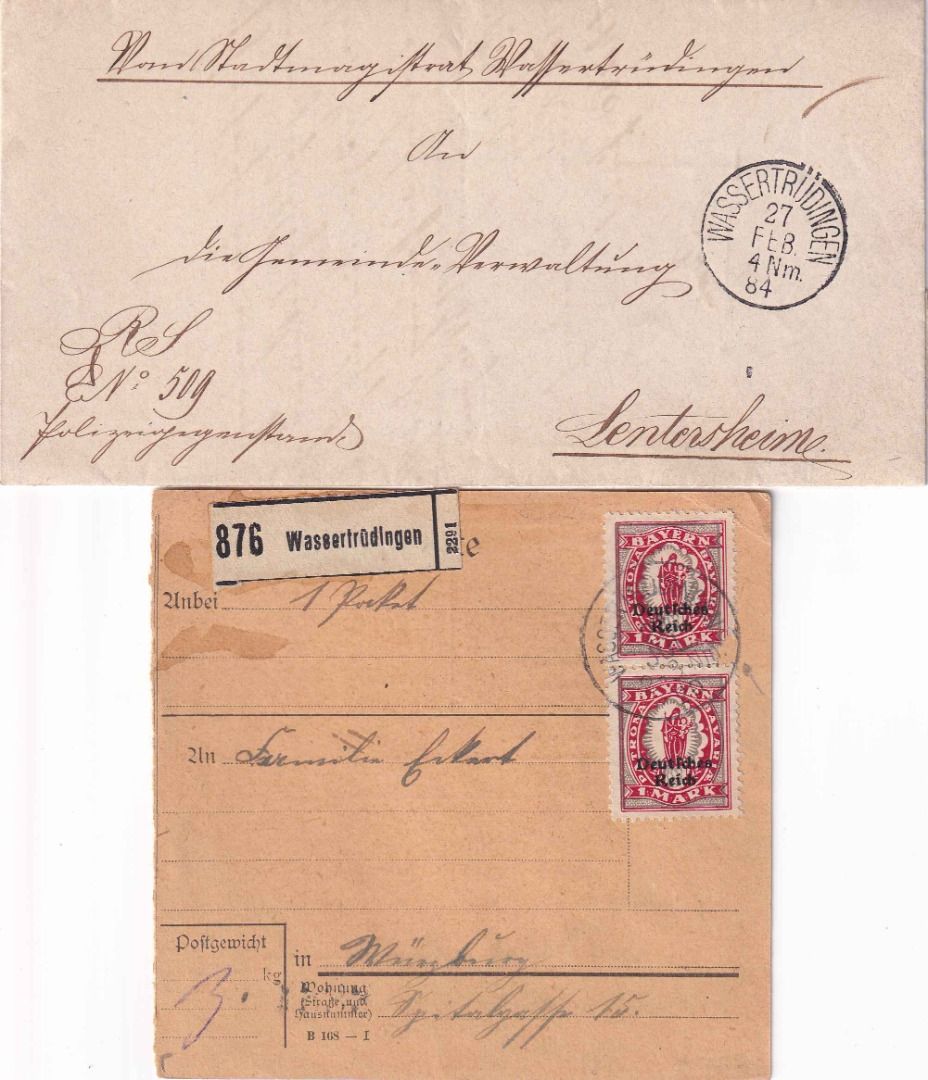 Vom Stadtmagistrat Wassertrüdingen
An
die Gemeinde-Verwaltung
WASSERTRÜDINGEN
27
FEB.
4 Nm.
84
R S
No 509
Polizeigegenstand
Lentersheim.
876 Wassertrüdingen 2291
te
Anbei 1 Paket
BAYERN
PATRONA BAVARIAE
Deutsches
Reich
1 MARK
BAYERN
PATRONA BAVARIAE
Deutsches
Reich
1 MARK
An Familie Eckert
Postgewicht
3. kg
in Würzburg
Wohnung
(Straße und
Hausnummer)
Spitalgasse 15.
B 168 — I